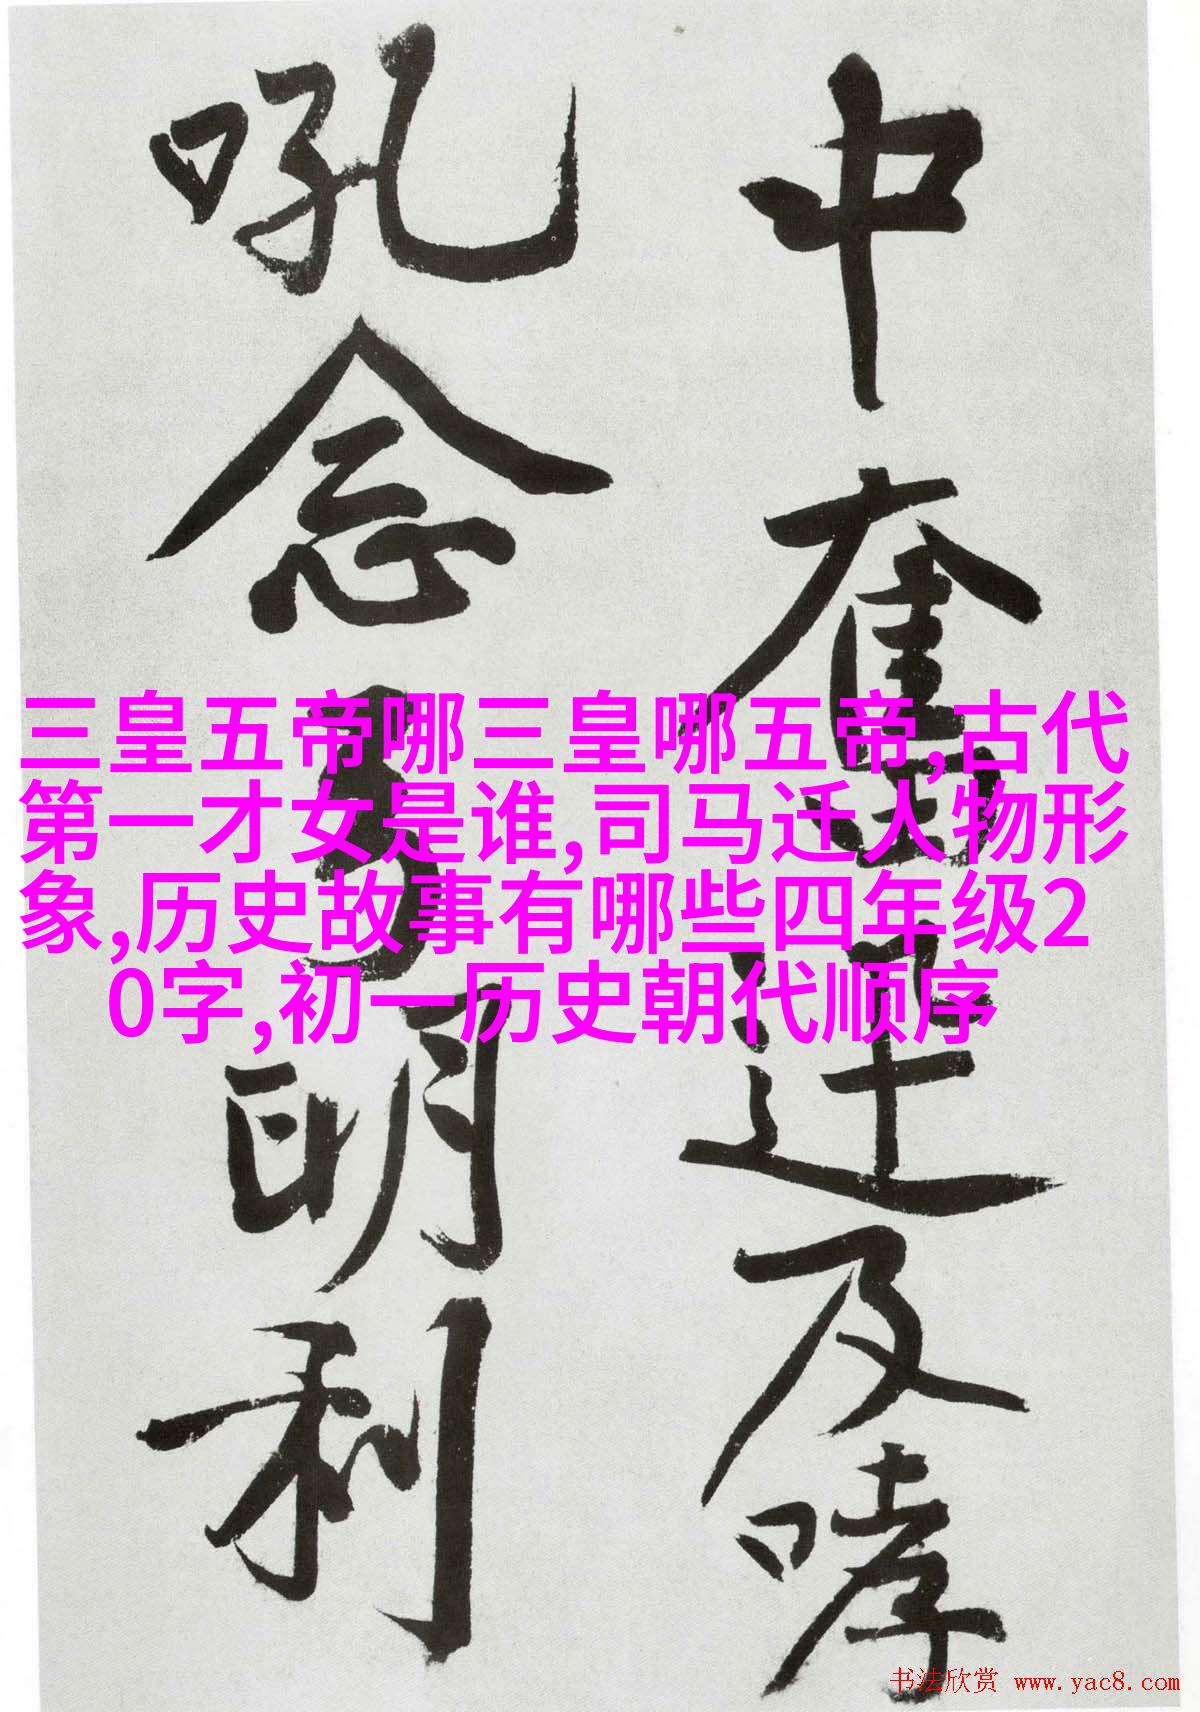 中奮
及哮
吼念
明利
三皇五帝哪三皇哪五帝,古代
第一才女是谁,司马迁人物形
象,历史故事有哪些四年级2
0字,初一历史朝代顺序
书法欣赏 www.yac8.com